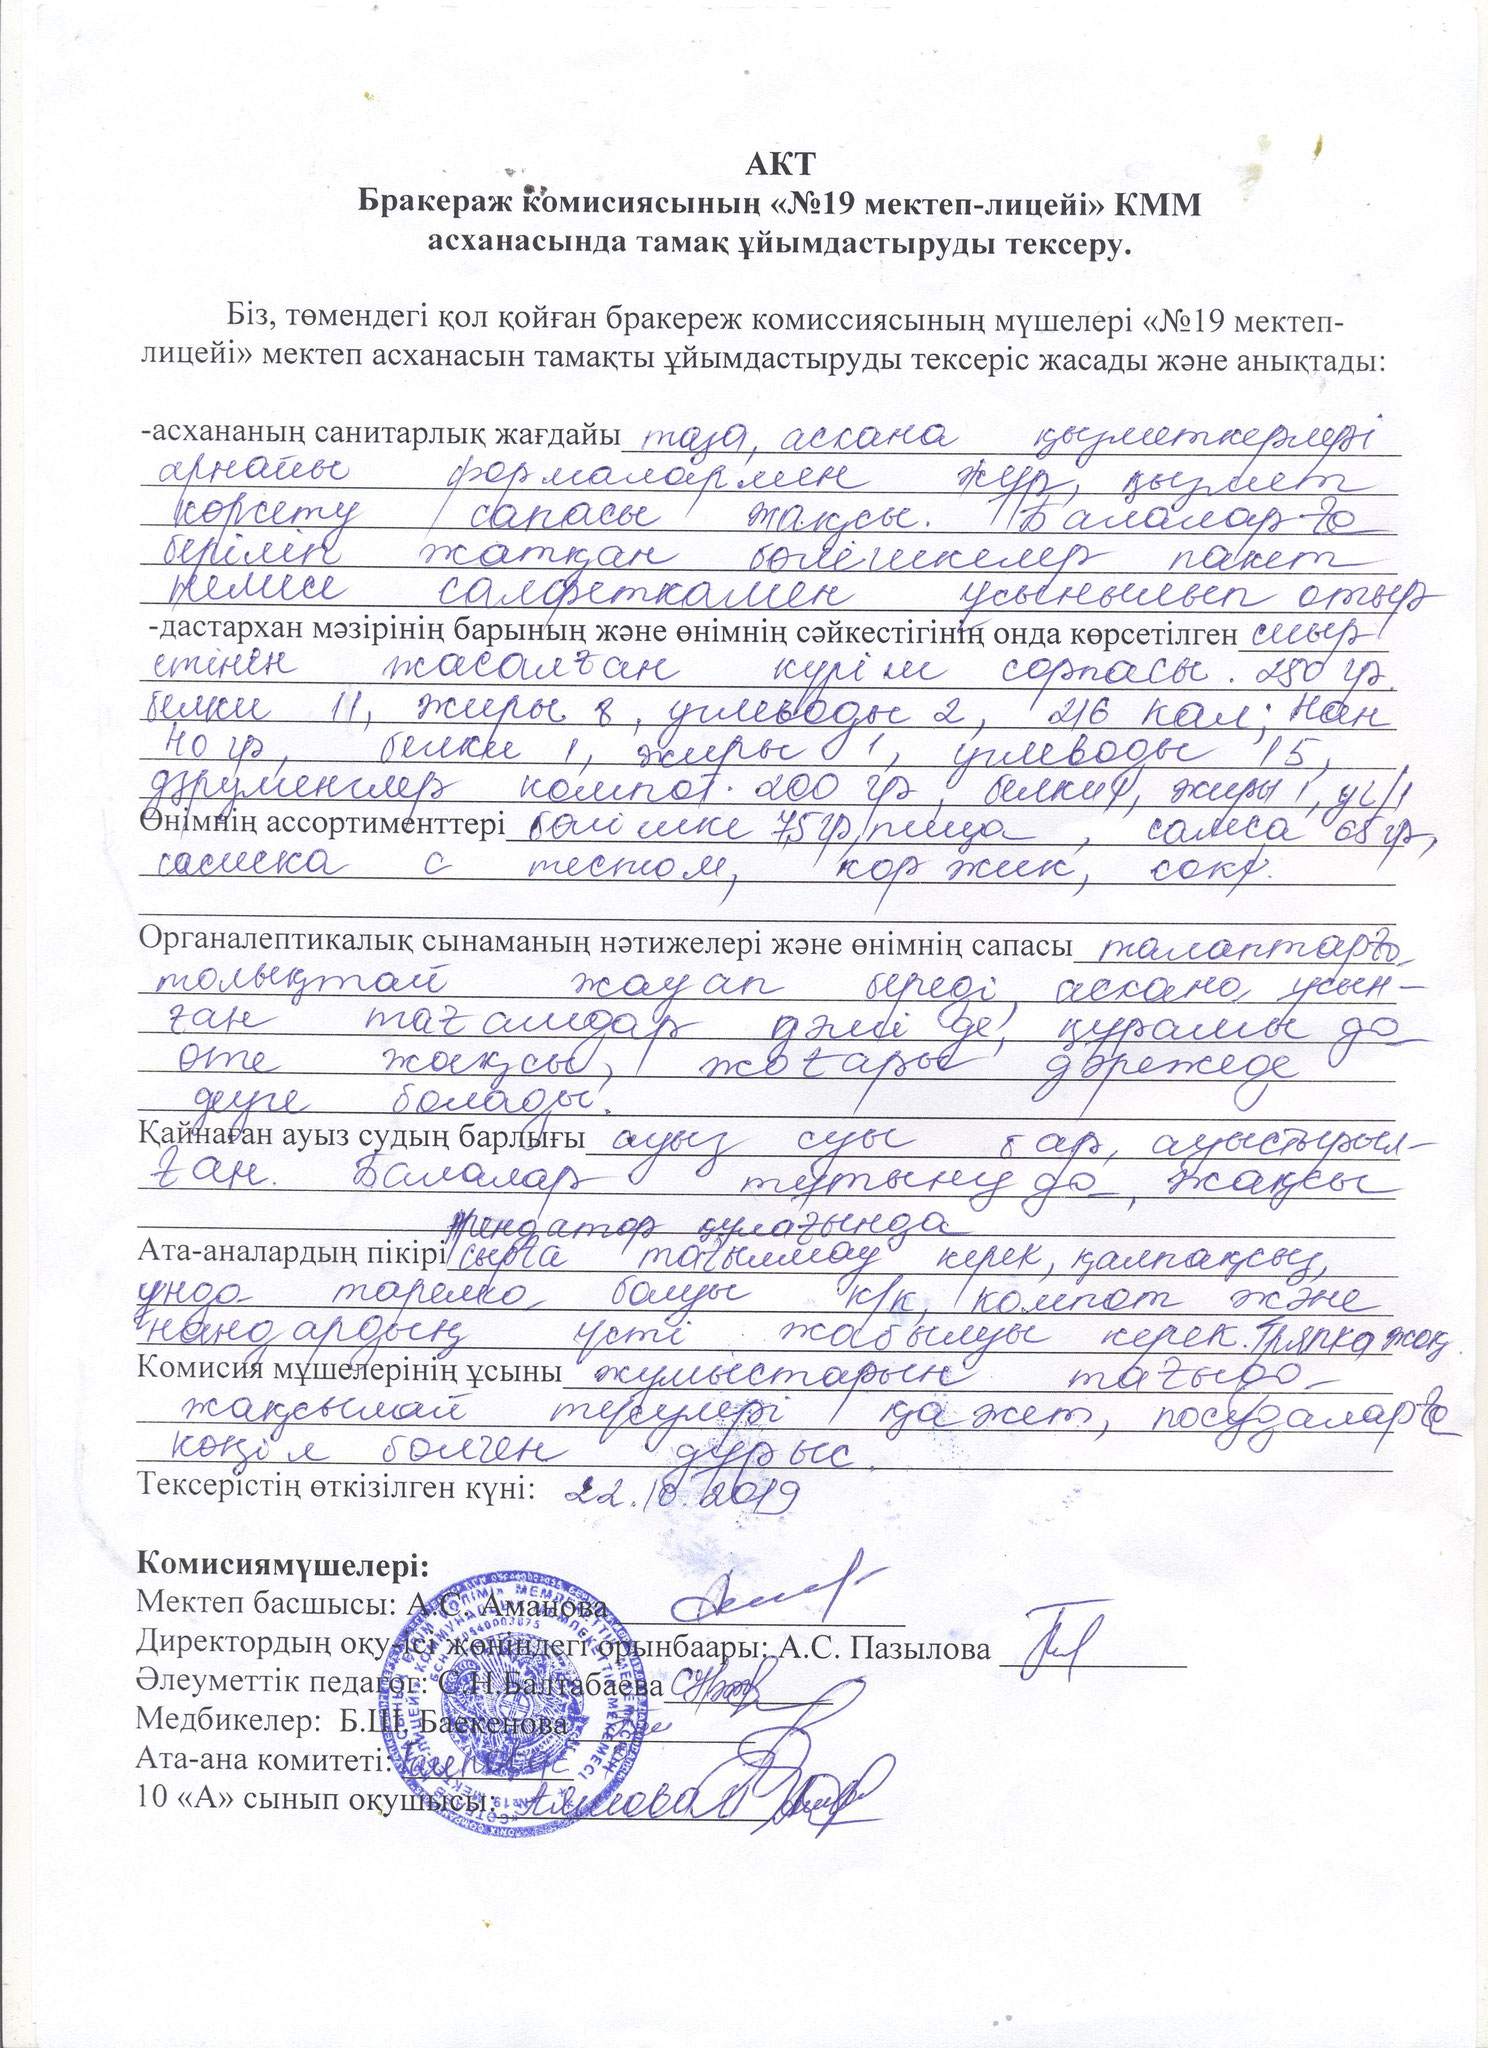 АКТ
Бракераж комисиясының «№19 мектеп-лицейі» КММ
асханасында тамақ ұйымдастыруды тексеру.
Біз, төмендегі қол қойған бракереж комиссиясының мүшелері «№19 мектеп-
лицейі» мектеп асханасын тамақты ұйымдастыруды тексеріс жасады және анықтады:
-асхананың санитарлық жағдайы таза, асхана қызметкерлері
арнайы формалармен жүр, қызмет
көрсету сапасы жақсы. Балаларға
беріліп жатқан бөлішкелер пакет
немесе салфеткамен ұсынылып отыр
-дастархан мәзірінің барының және өнімнің сәйкестігінің онда көрсетілген сиыр
етінен жасалған күріш сорпасы. 250 гр.
белки 11, жиры 8, углеводы 2, 216 кал; Нан
40 гр, белки 1, жиры 1, углеводы 15,
дәрумендер компот. 200 гр, белки, жиры 1,
Өнімнің ассортименттері бөлішке 75гр, пица, самса 65 гр,
сосиска с тестом, коржик, сокт.
Органалептикалық сынаманың нәтижелері және өнімнің сапасы талаптарға
толықтай жауап береді, асхана ұсын-
ған тағамдар дәмі де, құрамы да
өте жақсы, жоғары дәрежеде
деуге болады.
Қайнаған ауыз судың барлығы ауыз суы бар, ауыстырыл-
ған. Балалар тұтынуда, жақсы
құлағында
Ата-аналардың пікірі сырға тағылмау керек, қалпақсыз,
тарелка болуы к/к, компот және
нандардың үсті жабылуы керек. Тряпка жоқ.
Комисия мүшелерінің ұсыны жұмыстарын тағыда
жақсылай түсулері қажет, посудаларға
көңіл бөлген дұрыс.
Тексерістің өткізілген күні: 22.10.2019
Комисиямүшелері:
Мектеп басшысы: А.С. Аманова
Директордың оқу-ісі жөніндегі орынбаары: А.С. Пазылова
Әлеуметтік педагог: С.Н.Балтабаева
Медбикелер: Б.Ш. Баекенова
Ата-ана комитеті:
10 «А» сынып оқушысы: